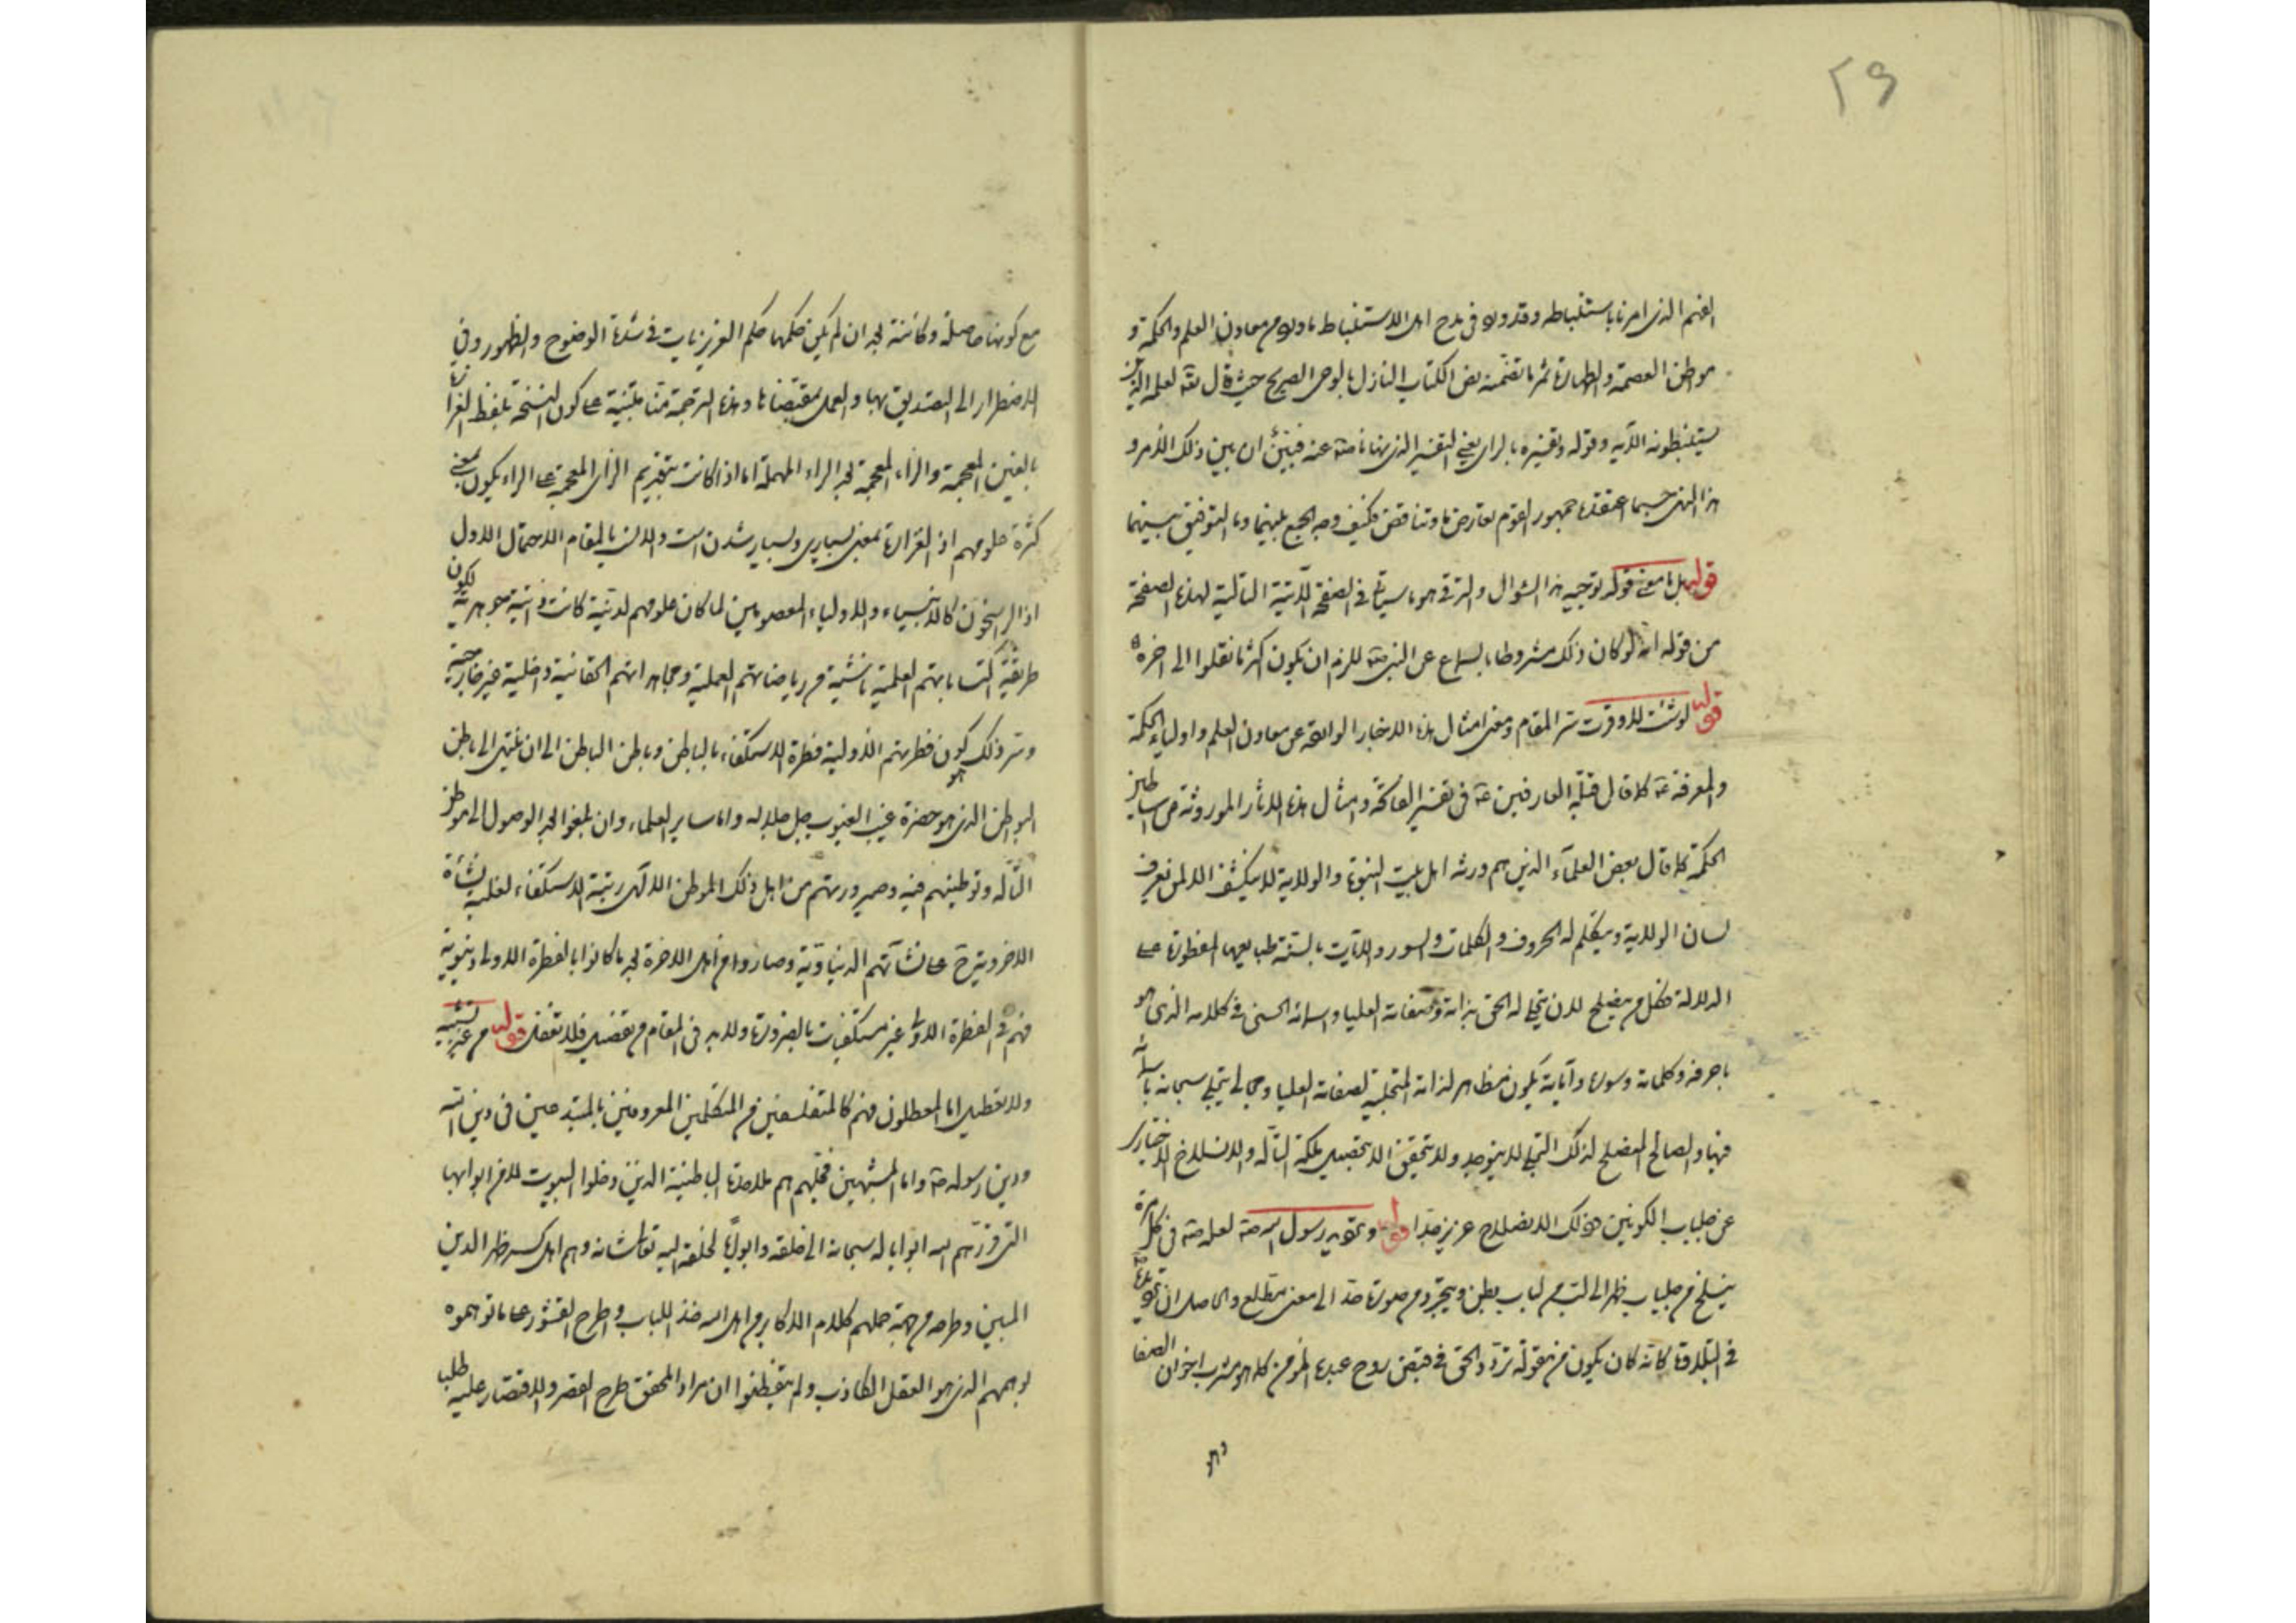 ٢٩
الفهم الذى امرنا باستنباطه وقد ورد فى مدح اهل الاستنباط ما ورد من معادن العلم والحكمة و
موطن العصمة والطهارة ثم ما تضمنه نص الكتاب النازل بالوحى الصريح حيث قال تعه لعلمه الذين
يستنبطونه الآية وقوله وتفسيره بالراى يعنى التفسير الذى نهانا صه عنه فبين ان بين ذلك الامر و
هذا النهى حسبما اعتقده جمهور القوم تعارضا وتناقض فكيف وجه الجمع بينهما وما التوفيق بينهما
قوله بل ما معنى قوله توجيه هذا السؤال والترقى هو ما سيأتى فى الصفحة الآتية التالية لهذه الصفحة
من قوله انه لو كان ذلك مشروطا بالسماع عن النبى صه للزم ان يكون اكثر ما نقلوا الى اخره
قوله لو شئت لاوقرت سر المقام ومغزى امثال هذه الاخبار الواقعة عن معادن العلم واولياء الحكمة
والمعرفة عه كما قال قبلة العارفين عه فى تفسير الفاتحة وامثال هذه الاثار الموروثة من اساطين
الحكمة كما قال بعض العلماء الذين هم ورثة اهل بيت النبوة والولاية لا ينكشف الا لمن يعرف
لسان الولاية ويتكلم له الحروف والكلمات والسور والآيات بالسنة طبايعها المفطورة على
الدلالة فكل من يصلح لان يتجلى له الحق بذاته وصفاته العليا واسمائه الحسنى فى كلامه الذى هو
باحرفه وكلماته وسوره وآياته يكون مظاهر لذاته المتجلية لصفاته العليا ومجالى يتجلى سبحانه باسمائه
فيها والصالح المصلح لذلك التجلى لا يوجد ولا يتحقق الا بتحصيل ملكة التأله والانسلاخ الاختيارى
عن جلباب الكونين وذلك الانصلاح عزيز جدا قوله وتحويه رسول الله صه لعله صه فى كل مرة
ينسلخ من جلباب ظهر الى لب من لباب بطن ويتجرد من صورة حد الى معنى مطلع والحاصل ان تحويه
فى التلاوة كانه كان يكون من مقولة تردد الحق فى قبض روح عبده المؤمن كما هو مشرب اخوان الصفا
وهو
مع كونها حاصلة وكائنة لجد ان لم يكن حكمها حكم الغريزيات فى شدة الوضوح والظهور وفى
الاضطرار الى التصديق بها والعمل بمقتضاها وهذه الترجمة منا مبتنية على كون النسخة بلفظ الغرازة
بالغين المعجمة والزاء المعجمة لجد الراء المهملة اما اذا كانت بتقديم الزاى المعجمة على الراء يكون بمعنى
كثرة علومهم اذ الغزارة بمعنى بسيارى وبسيار شدن است والانسب بالمقام الاحتمال الاول
اذ الراسخون كالانبياء والاولياء المعصومين لما كان علومهم لدنية كانت ذاتية جوهرية لكون
طريقة اكتساباتهم العلمية ناشئة من رياضاتهم العملية ومجاهداتهم الحقانية داخلية غير خارجية
وسر ذلك كون فطرتهم الاولية فطرة الاستكفاء بالباطن وباطن الباطن الى ان ينتهى الى باطن
البواطن الذى هو حضرة غيب الغيوب جل جلاله واما ساير العلماء وان بلغوا لجد الوصول الى موطن
التأله وتوطينهم فيه وصيرورتهم من اهل ذلك الموطن الالهى رتبة الاستكفاء لغلبة نشأة
الاخروية على نشآتهم الدنياوية وصاروا من اهل الاخرة لجد ما كانوا بالفطرة الاولى دنيوية
فهم فى الفطرة الاولى غير مستكفيات بالضرورة ولابد فى المقام من تفصيل فلا تغفل قوله من غير تشبيه
ولا تعطيل اما المعطلون فهم كالمتفلسفين من المتكلمين المعروفين بالمبتدعين فى دين الله
ودين رسوله صه واما المشبهين فجلهم هم ملاحدة الباطنية الذين دخلوا البيوت لا من ابوابها
التى قررهم الله ابوابا له سبحانه الى خلقه وابوابا لخلقه اليه تعالى شانه وهم اهل كسر ظهر الدين
المبين وطرحه من جهة حملهم كلام الاكابر من اهل الله خذ اللباب واطرح القشور على ما توهموه
لوهمهم الذى هو العقل الكاذب ولم يتفطنوا ان مراد المحقق طرح القصر والاقتصار عليه طلب